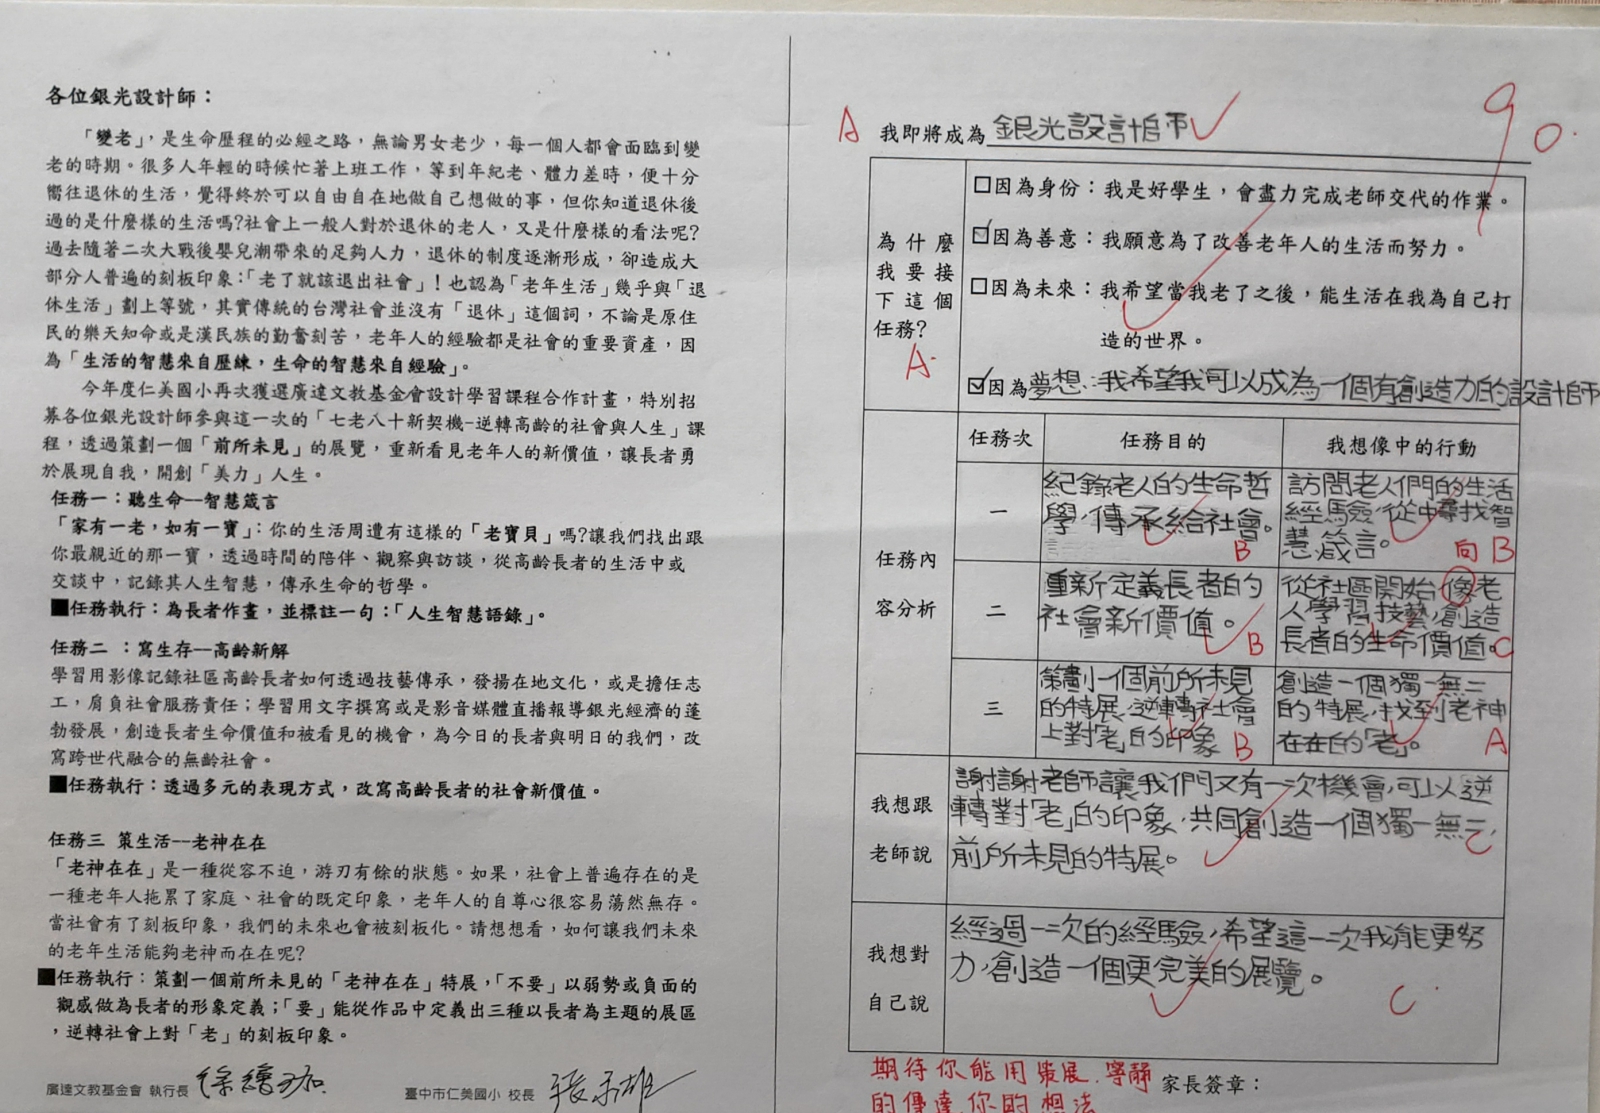 各位銀光設計師：
「變老」，是生命歷程的必經之路，無論男女老少，每一個人都會面臨到變
老的時期。很多人年輕的時候忙著上班工作，等到年紀老、體力差時，便十分
嚮往退休的生活，覺得終於可以自由自在地做自己想做的事，但你知道退休後
過的是什麼樣的生活嗎?社會上一般人對於退休的老人，又是什麼樣的看法呢?
過去隨著二次大戰後嬰兒潮帶來的足夠人力，退休的制度逐漸形成，卻造成大
部分人普遍的刻板印象：「老了就該退出社會」！也認為「老年生活」幾乎與「退
休生活」劃上等號，其實傳統的台灣社會並沒有「退休」這個詞，不論是原住
民的樂天知命或是漢民族的勤奮刻苦，老年人的經驗都是社會的重要資產，因
為「生活的智慧來自歷練，生命的智慧來自經驗」。
今年度仁美國小再次獲選廣達文教基金會設計學習課程合作計畫，特別招
募各位銀光設計師參與這一次的「七老八十新契機-逆轉高齡的社會與人生」課
程，透過策劃一個「前所未見」的展覽，重新看見老年人的新價值，讓長者勇
於展現自我，開創「美力」人生。
任務一：聽生命--智慧箴言
「家有一老，如有一寶」：你的生活周遭有這樣的「老寶貝」嗎?讓我們找出跟
你最親近的那一寶，透過時間的陪伴、觀察與訪談，從高齡長者的生活中或
交談中，記錄其人生智慧，傳承生命的哲學。
■任務執行：為長者作畫，並標註一句：「人生智慧語錄」。
任務二 ：寫生存--高齡新解
學習用影像記錄社區高齡長者如何透過技藝傳承，發揚在地文化，或是擔任志
工，肩負社會服務責任；學習用文字撰寫或是影音媒體直播報導銀光經濟的蓬
勃發展，創造長者生命價值和被看見的機會，為今日的長者與明日的我們，改
寫跨世代融合的無齡社會。
■任務執行：透過多元的表現方式，改寫高齡長者的社會新價值。
任務三 策生活--老神在在
「老神在在」是一種從容不迫，游刃有餘的狀態。如果，社會上普遍存在的是
一種老年人拖累了家庭、社會的既定印象，老年人的自尊心很容易蕩然無存。
當社會有了刻板印象，我們的未來也會被刻板化。請想想看，如何讓我們未來
的老年生活能夠老神而在在呢?
■任務執行：策劃一個前所未見的「老神在在」特展，「不要」以弱勢或負面的
觀感做為長者的形象定義；「要」能從作品中定義出三種以長者為主題的展區
，逆轉社會上對「老」的刻板印象。
廣達文教基金會 執行長
臺中市仁美國小 校長
A 我即將成為 銀光設計師
90.
為什麼
我要接
下這個
任務?
A
□因為身份：我是好學生，會盡力完成老師交代的作業。
☑因為善意：我願意為了改善老年人的生活而努力。
□因為未來：我希望當我老了之後，能生活在我為自己打
造的世界。
☑因為夢想：我希望我可以成為一個有創造力的設計師
任務內
容分析
任務次 任務目的 我想像中的行動
一
紀錄老人的生命哲
學，傳承給社會。
B
訪問老人們的生活
經驗，從中尋找智
慧箴言。
向 B
二
重新定義長者的
社會新價值。
B
從社區開始，像老
人學習技藝，創造
長者的生命價值。
C
三
策劃一個前所未見
的特展，逆轉社會
上對「老」的印象
B
創造一個獨一無二
的特展，找到老神
在在的「老」。
A
我想跟
老師說
謝謝老師讓我們又有一次機會，可以逆
轉對「老」的印象，共同創造一個獨一無二，
前所未見的特展。
C
我想對
自己說
經過一次的經驗，希望這一次我能更努
力，創造一個更完美的展覽。
C
期待你能用策展，寧靜
的傳達你的想法
家長簽章：